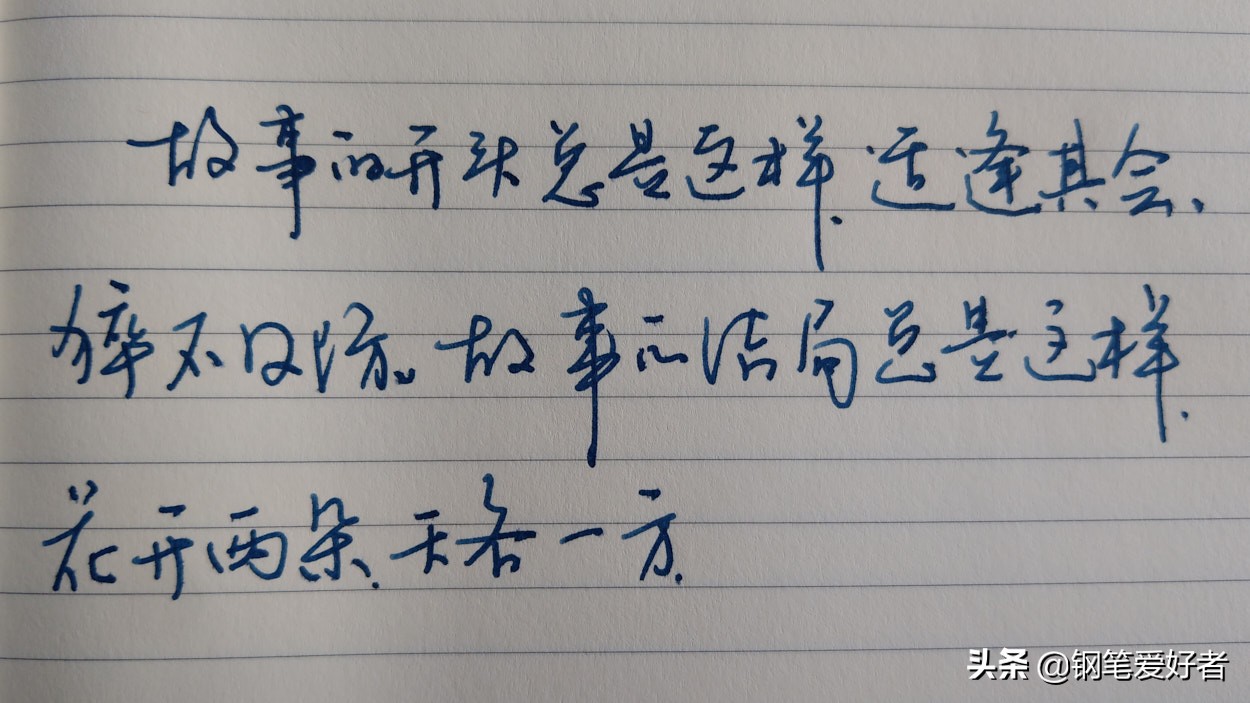 故事的开头总是这样.适逢其会、
猝不及防。故事的结局总是这样.
花开两朵.天各一方.
头条 @钢笔爱好者